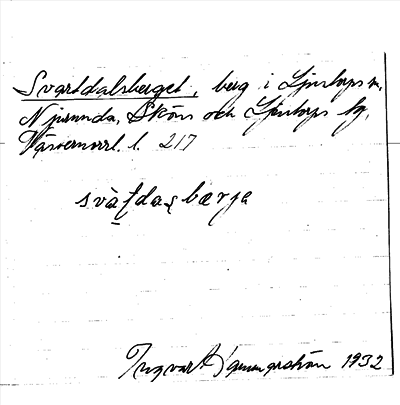 Svartdalsberget, berg i Ljustorps sn,
Njurunda, Sköns och Ljustorps tg,
Västernorrl. l. 217
svà bærja
Ingvar 1932